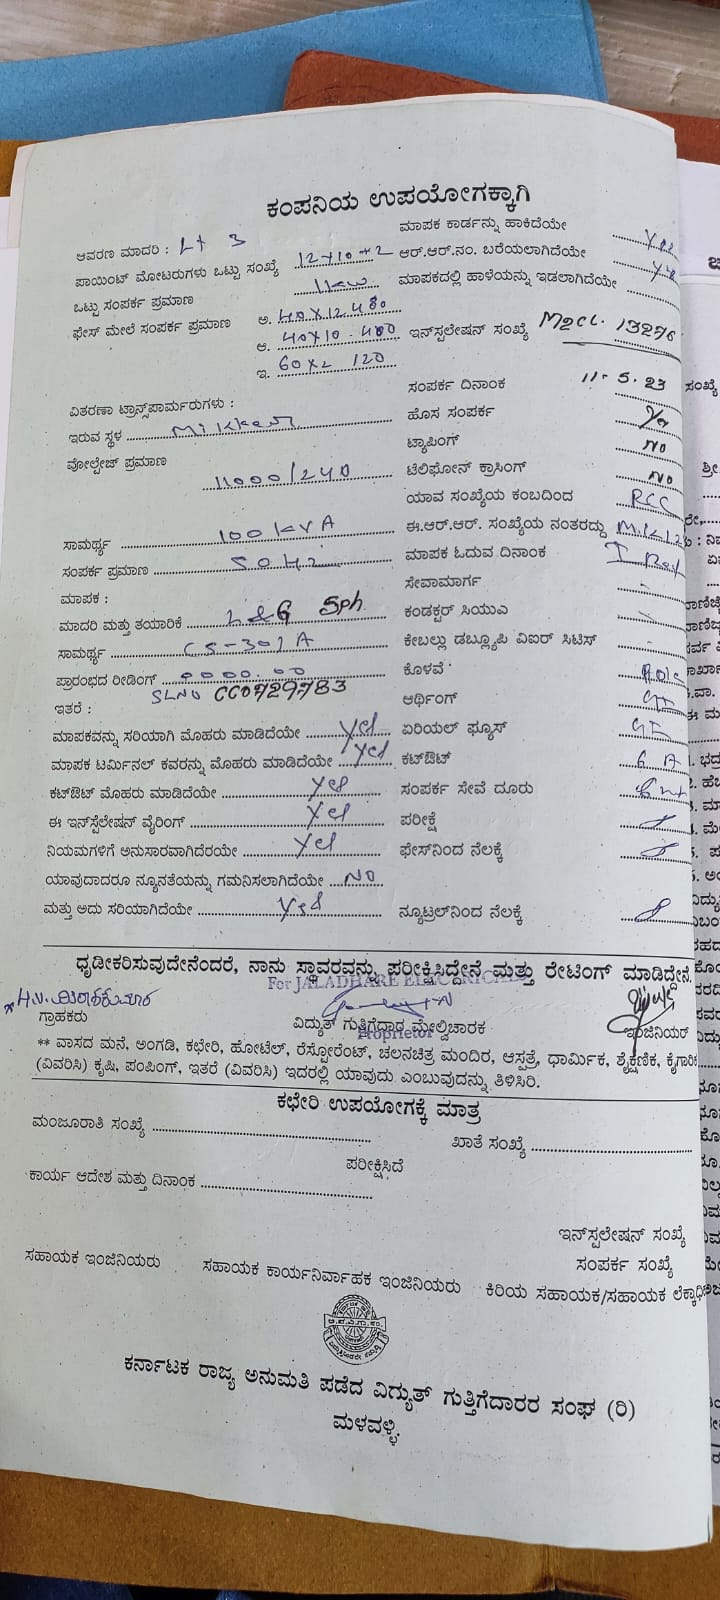 ಕಂಪನಿಯ ಉಪಯೋಗಕ್ಕಾಗಿ
ಆವರಣ ಮಾದರಿ : Lt 3
ಮಾಪಕ ಕಾರ್ಡನ್ನು ಹಾಕಿದೆಯೇ Yes
ಪಾಯಿಂಟ್ ಮೋಟರುಗಳು ಒಟ್ಟು ಸಂಖ್ಯೆ 12+10+2
ಆರ್.ಆರ್.ನಂ. ಬರೆಯಲಾಗಿದೆಯೇ Yes
ಒಟ್ಟು ಸಂಪರ್ಕ ಪ್ರಮಾಣ 1kw
ಮಾಪಕದಲ್ಲಿ ಹಾಳೆಯನ್ನು ಇಡಲಾಗಿದೆಯೇ
ಫೇಸ್ ಮೇಲೆ ಸಂಪರ್ಕ ಪ್ರಮಾಣ ಅ. 40X12 480
ಆ. 40X10 400
ಇನ್‌ಸ್ಟಲೇಷನ್ ಸಂಖ್ಯೆ M2CL. 13276
ಇ. 60X2 120
ಸಂಪರ್ಕ ದಿನಾಂಕ 11-5-23
ವಿತರಣಾ ಟ್ರಾನ್ಸ್‌ಪಾರ್ಮರುಗಳು :
ಹೊಸ ಸಂಪರ್ಕ Yes
ಇರುವ ಸ್ಥಳ
ಟ್ಯಾಪಿಂಗ್ NO
ವೋಲ್ಟೇಜ್ ಪ್ರಮಾಣ 11000/240
ಟೆಲಿಫೋನ್ ಕ್ರಾಸಿಂಗ್ NO
ಯಾವ ಸಂಖ್ಯೆಯ ಕಂಬದಿಂದ RCC
ಸಾಮರ್ಥ್ಯ 100 kVA
ಈ.ಆರ್.ಆರ್. ಸಂಖ್ಯೆಯ ನಂತರದ್ದು
ಸಂಪರ್ಕ ಪ್ರಮಾಣ 50Hz
ಮಾಪಕ ಓದುವ ದಿನಾಂಕ
ಮಾಪಕ :
ಸೇವಾಮಾರ್ಗ -
ಮಾದರಿ ಮತ್ತು ತಯಾರಿಕೆ L&G Sph
ಕಂಡಕ್ಟರ್ ಸಿಯುವಿ -
ಸಾಮರ್ಥ್ಯ CS-301A
ಕೇಬಲ್ಲು ಡಬ್ಲ್ಯೂಪಿ ವಿಐರ್ ಸಿಟಿಸ್ -
ಪ್ರಾರಂಭದ ರೀಡಿಂಗ್ 0000.00
ಕೊಳವೆ
SLNO CC0729783
ಇತರೆ :
ಆರ್ಥಿಂಗ್ GI
ಮಾಪಕವನ್ನು ಸರಿಯಾಗಿ ಮೊಹರು ಮಾಡಿದೆಯೇ Yes
ಏರಿಯಲ್ ಫ್ಯೂಸ್ GI
ಮಾಪಕ ಟರ್ಮಿನಲ್ ಕವರನ್ನು ಮೊಹರು ಮಾಡಿದೆಯೇ Yes
ಕಟ್‌ಔಟ್ 6 A
ಕಟ್‌ಔಟ್ ಮೊಹರು ಮಾಡಿದೆಯೇ Yes
ಸಂಪರ್ಕ ಸೇವೆ ದೂರು
ಈ ಇನ್‌ಸ್ಟೆಲೇಷನ್ ವೈರಿಂಗ್ Yes
ಪರೀಕ್ಷೆ
ನಿಯಮಗಳಿಗೆ ಅನುಸಾರವಾಗಿದೆರಯೇ Yes
ಫೇಸ್‌ನಿಂದ ನೆಲಕ್ಕೆ
ಯಾವುದಾದರೂ ನ್ಯೂನತೆಯನ್ನು ಗಮನಿಸಲಾಗಿದೆಯೇ NO
ಮತ್ತು ಅದು ಸರಿಯಾಗಿದೆಯೇ Yes
ನ್ಯೂಟ್ರಲ್‌ನಿಂದ ನೆಲಕ್ಕೆ
ಧೃಡೀಕರಿಸುವುದೇನೆಂದರೆ, ನಾನು ಸ್ಥಾವರವನ್ನು ಪರೀಕ್ಷಿಸಿದ್ದೇನೆ ಮತ್ತು ರೇಟಿಂಗ್ ಮಾಡಿದ್ದೇನೆ.
For JALADHARE ELECTRICALS
ಗ್ರಾಹಕರು
ವಿದ್ಯುತ್ ಗುತ್ತಿಗೆದಾರ ಮೇಲ್ವಿಚಾರಕ
ಇಂಜಿನಿಯರ್
Proprietor
** ವಾಸದ ಮನೆ, ಅಂಗಡಿ, ಕಛೇರಿ, ಹೋಟೆಲ್, ರೆಸ್ಟೋರೆಂಟ್, ಚಲನಚಿತ್ರ ಮಂದಿರ, ಆಸ್ಪತ್ರೆ, ಧಾರ್ಮಿಕ, ಶೈಕ್ಷಣಿಕ, ಕೈಗಾರಿಕೆ
(ವಿವರಿಸಿ) ಕೃಷಿ, ಪಂಪಿಂಗ್, ಇತರೆ (ವಿವರಿಸಿ) ಇದರಲ್ಲಿ ಯಾವುದು ಎಂಬುವುದನ್ನು ತಿಳಿಸಿರಿ.
ಕಛೇರಿ ಉಪಯೋಗಕ್ಕೆ ಮಾತ್ರ
ಮಂಜೂರಾತಿ ಸಂಖ್ಯೆ
ಖಾತೆ ಸಂಖ್ಯೆ
ಪರೀಕ್ಷಿಸಿದೆ
ಕಾರ್ಯ ಆದೇಶ ಮತ್ತು ದಿನಾಂಕ
ಇನ್‌ಸ್ಟಲೇಷನ್ ಸಂಖ್ಯೆ
ಸಂಪರ್ಕ ಸಂಖ್ಯೆ
ಸಹಾಯಕ ಇಂಜಿನಿಯರು
ಸಹಾಯಕ ಕಾರ್ಯನಿರ್ವಾಹಕ ಇಂಜಿನಿಯರು
ಕಿರಿಯ ಸಹಾಯಕ/ಸಹಾಯಕ
ಕರ್ನಾಟಕ ರಾಜ್ಯ ಅನುಮತಿ ಪಡೆದ ವಿದ್ಯುತ್ ಗುತ್ತಿಗೆದಾರರ ಸಂಘ (ರಿ)
ಮಳವಳ್ಳಿ.